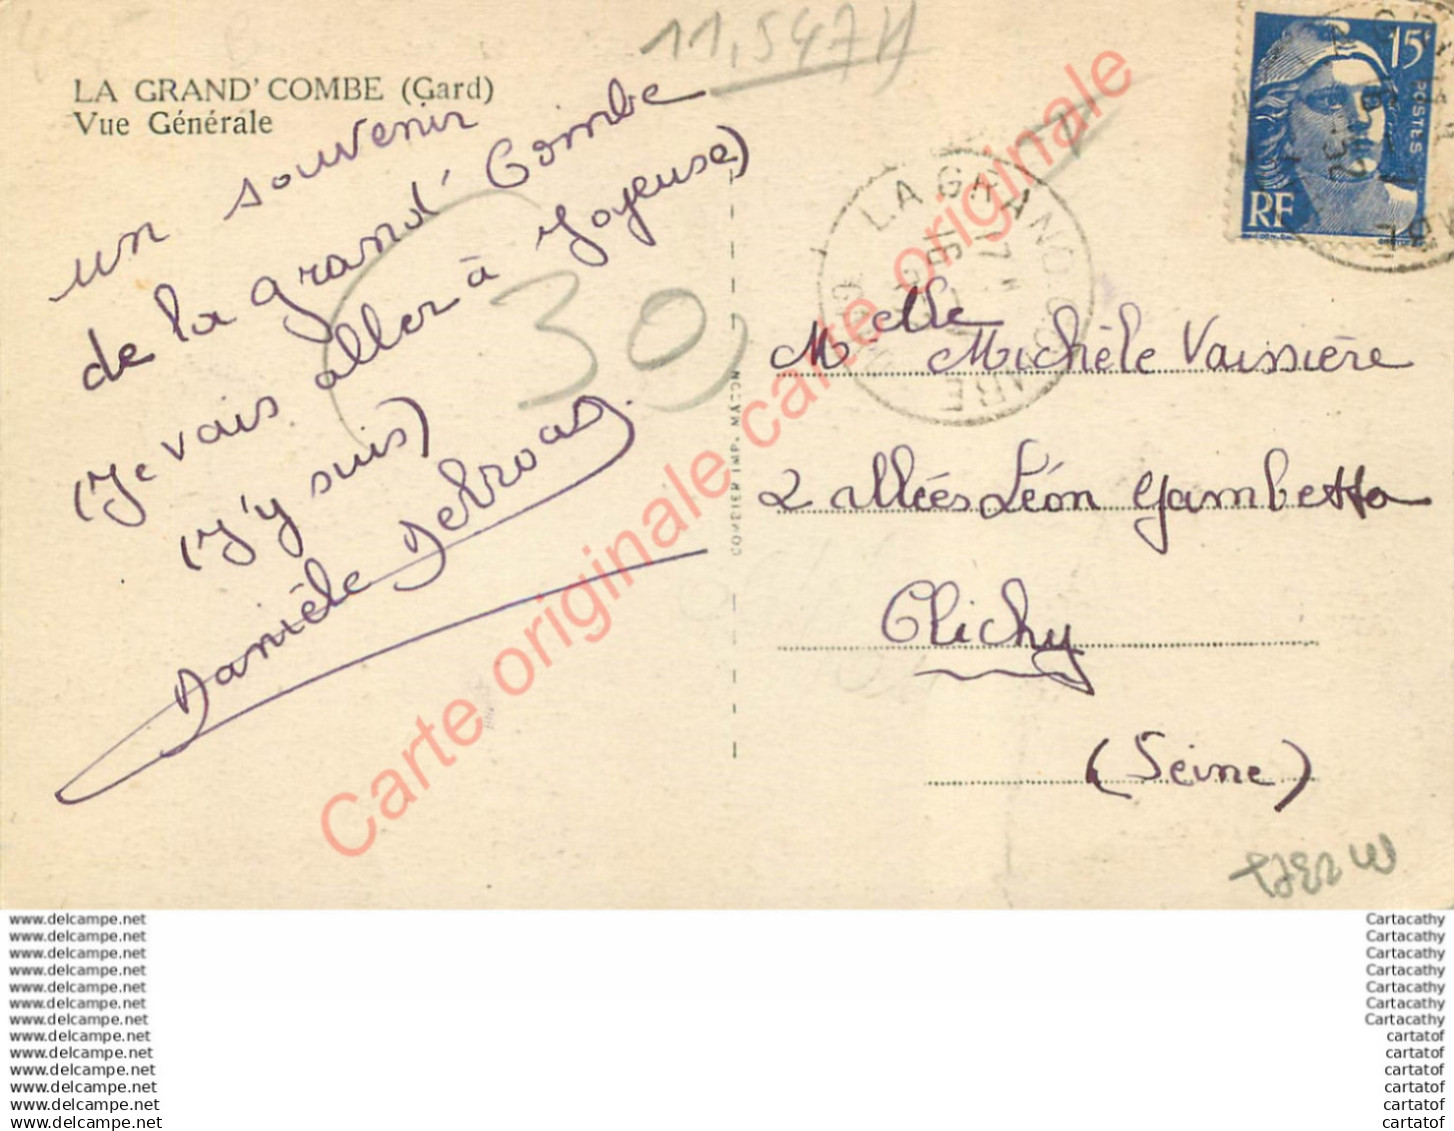 11,547
LA GRAND' COMBE (Gard)
Vue Générale
un souvenir
de la grand' Combe
(Je vais aller à Joyeuse)
(J'y suis)
Danièle
30
COMBIER IMP. MACON
LA GRAND-COMBE
GARD
15F
POSTES
RF
Melle Michèle Vaissière
2 allées Léon Gambetta
Clichy
(Seine)
Carte originale carte originale
www.delcampe.net
www.delcampe.net
www.delcampe.net
www.delcampe.net
www.delcampe.net
www.delcampe.net
www.delcampe.net
www.delcampe.net
www.delcampe.net
www.delcampe.net
www.delcampe.net
www.delcampe.net
www.delcampe.net
Cartacathy
Cartacathy
Cartacathy
Cartacathy
Cartacathy
Cartacathy
Cartacathy
cartatof
cartatof
cartatof
cartatof
cartatof
cartatof